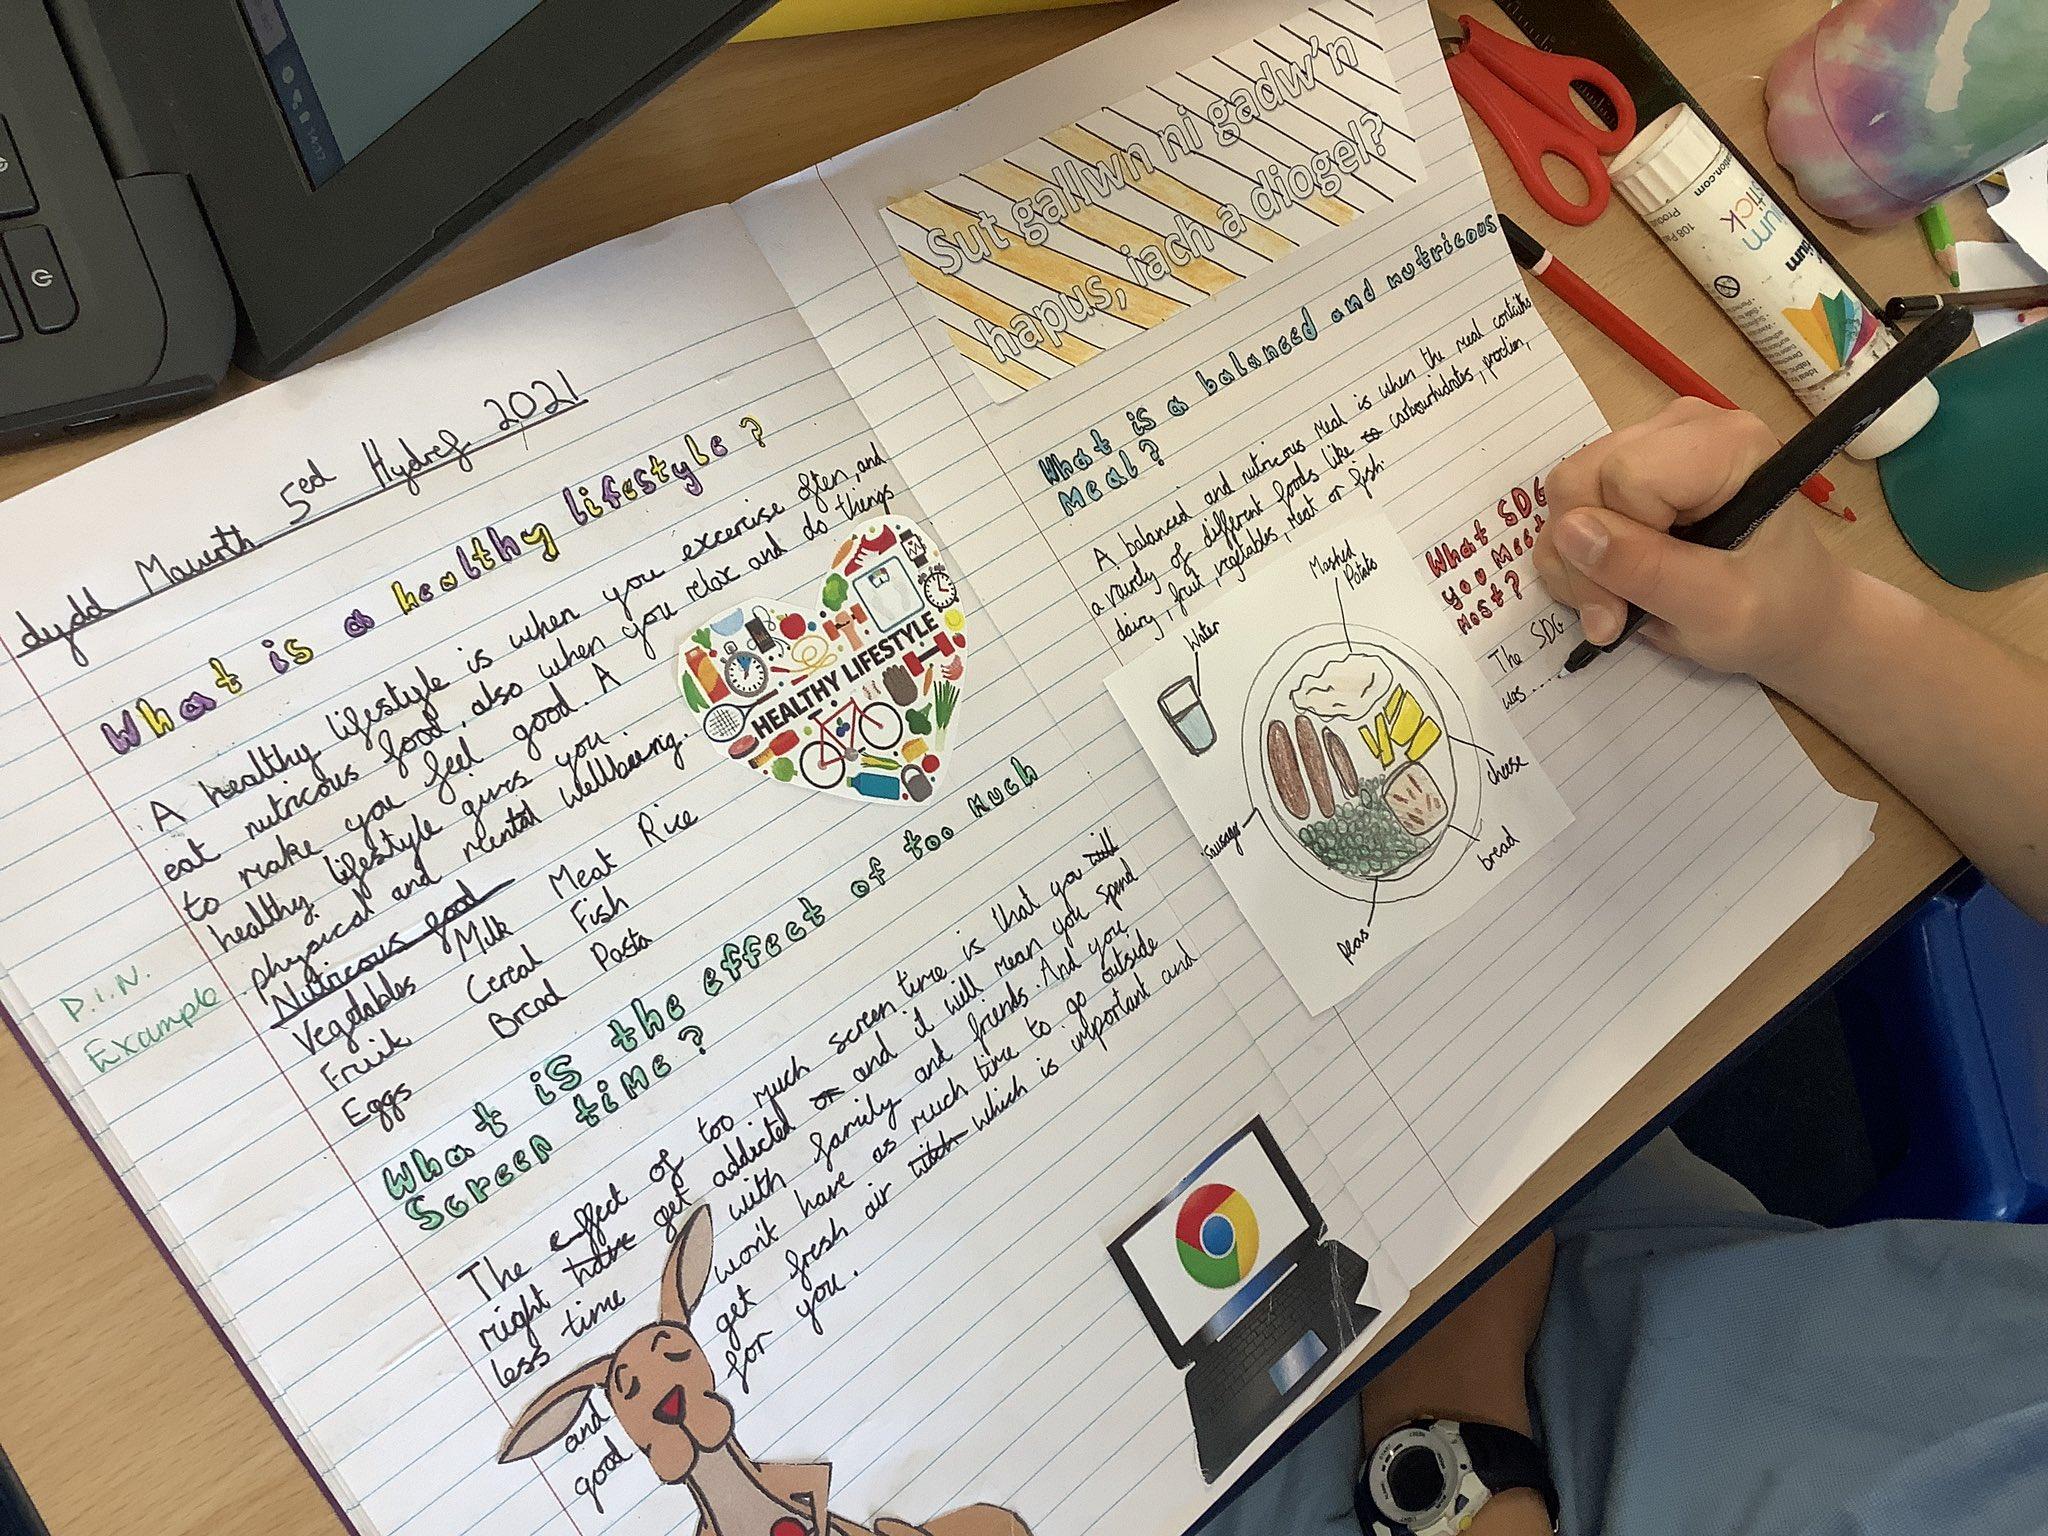 dydd Mawrth 5ed Hydref 2021
What is a healthy lifestyle?
A healthy lifestyle is when you excerise often, and
eat nutricous food, also when you relax and do things
to make you feel good. A
healthy lifestyle gives you
physical and mental wellbeing.
HEALTHY LIFESTYLE
P.I.N.
Example
Nutricous food
Vegetables Milk Meat Rice
Fruit Cereal Fish
Eggs Bread Pasta
What is the effect of too much
Screen time?
The effect of too much screen time is that you will
might have get addicted or and it will mean you spend
less time with family and friends. And you
won't have as much time to go outside
and get fresh air witch which is important and
good for you.
Sut gallwn ni gadw'n
hapus, iach a diogel?
What is a balanced and nutricous
Meal?
A balanced and nutricous meal is when the meal contains
a vairety of different foods like carbourhidrates, protien,
dairy, fruit, vegetables, meat or fish.
Water
Mashed
Potato
cheese
bread
peas
Sausages
What SDG
you Meet
Most?
The SDG
was....
14:37
108 Pa
stick